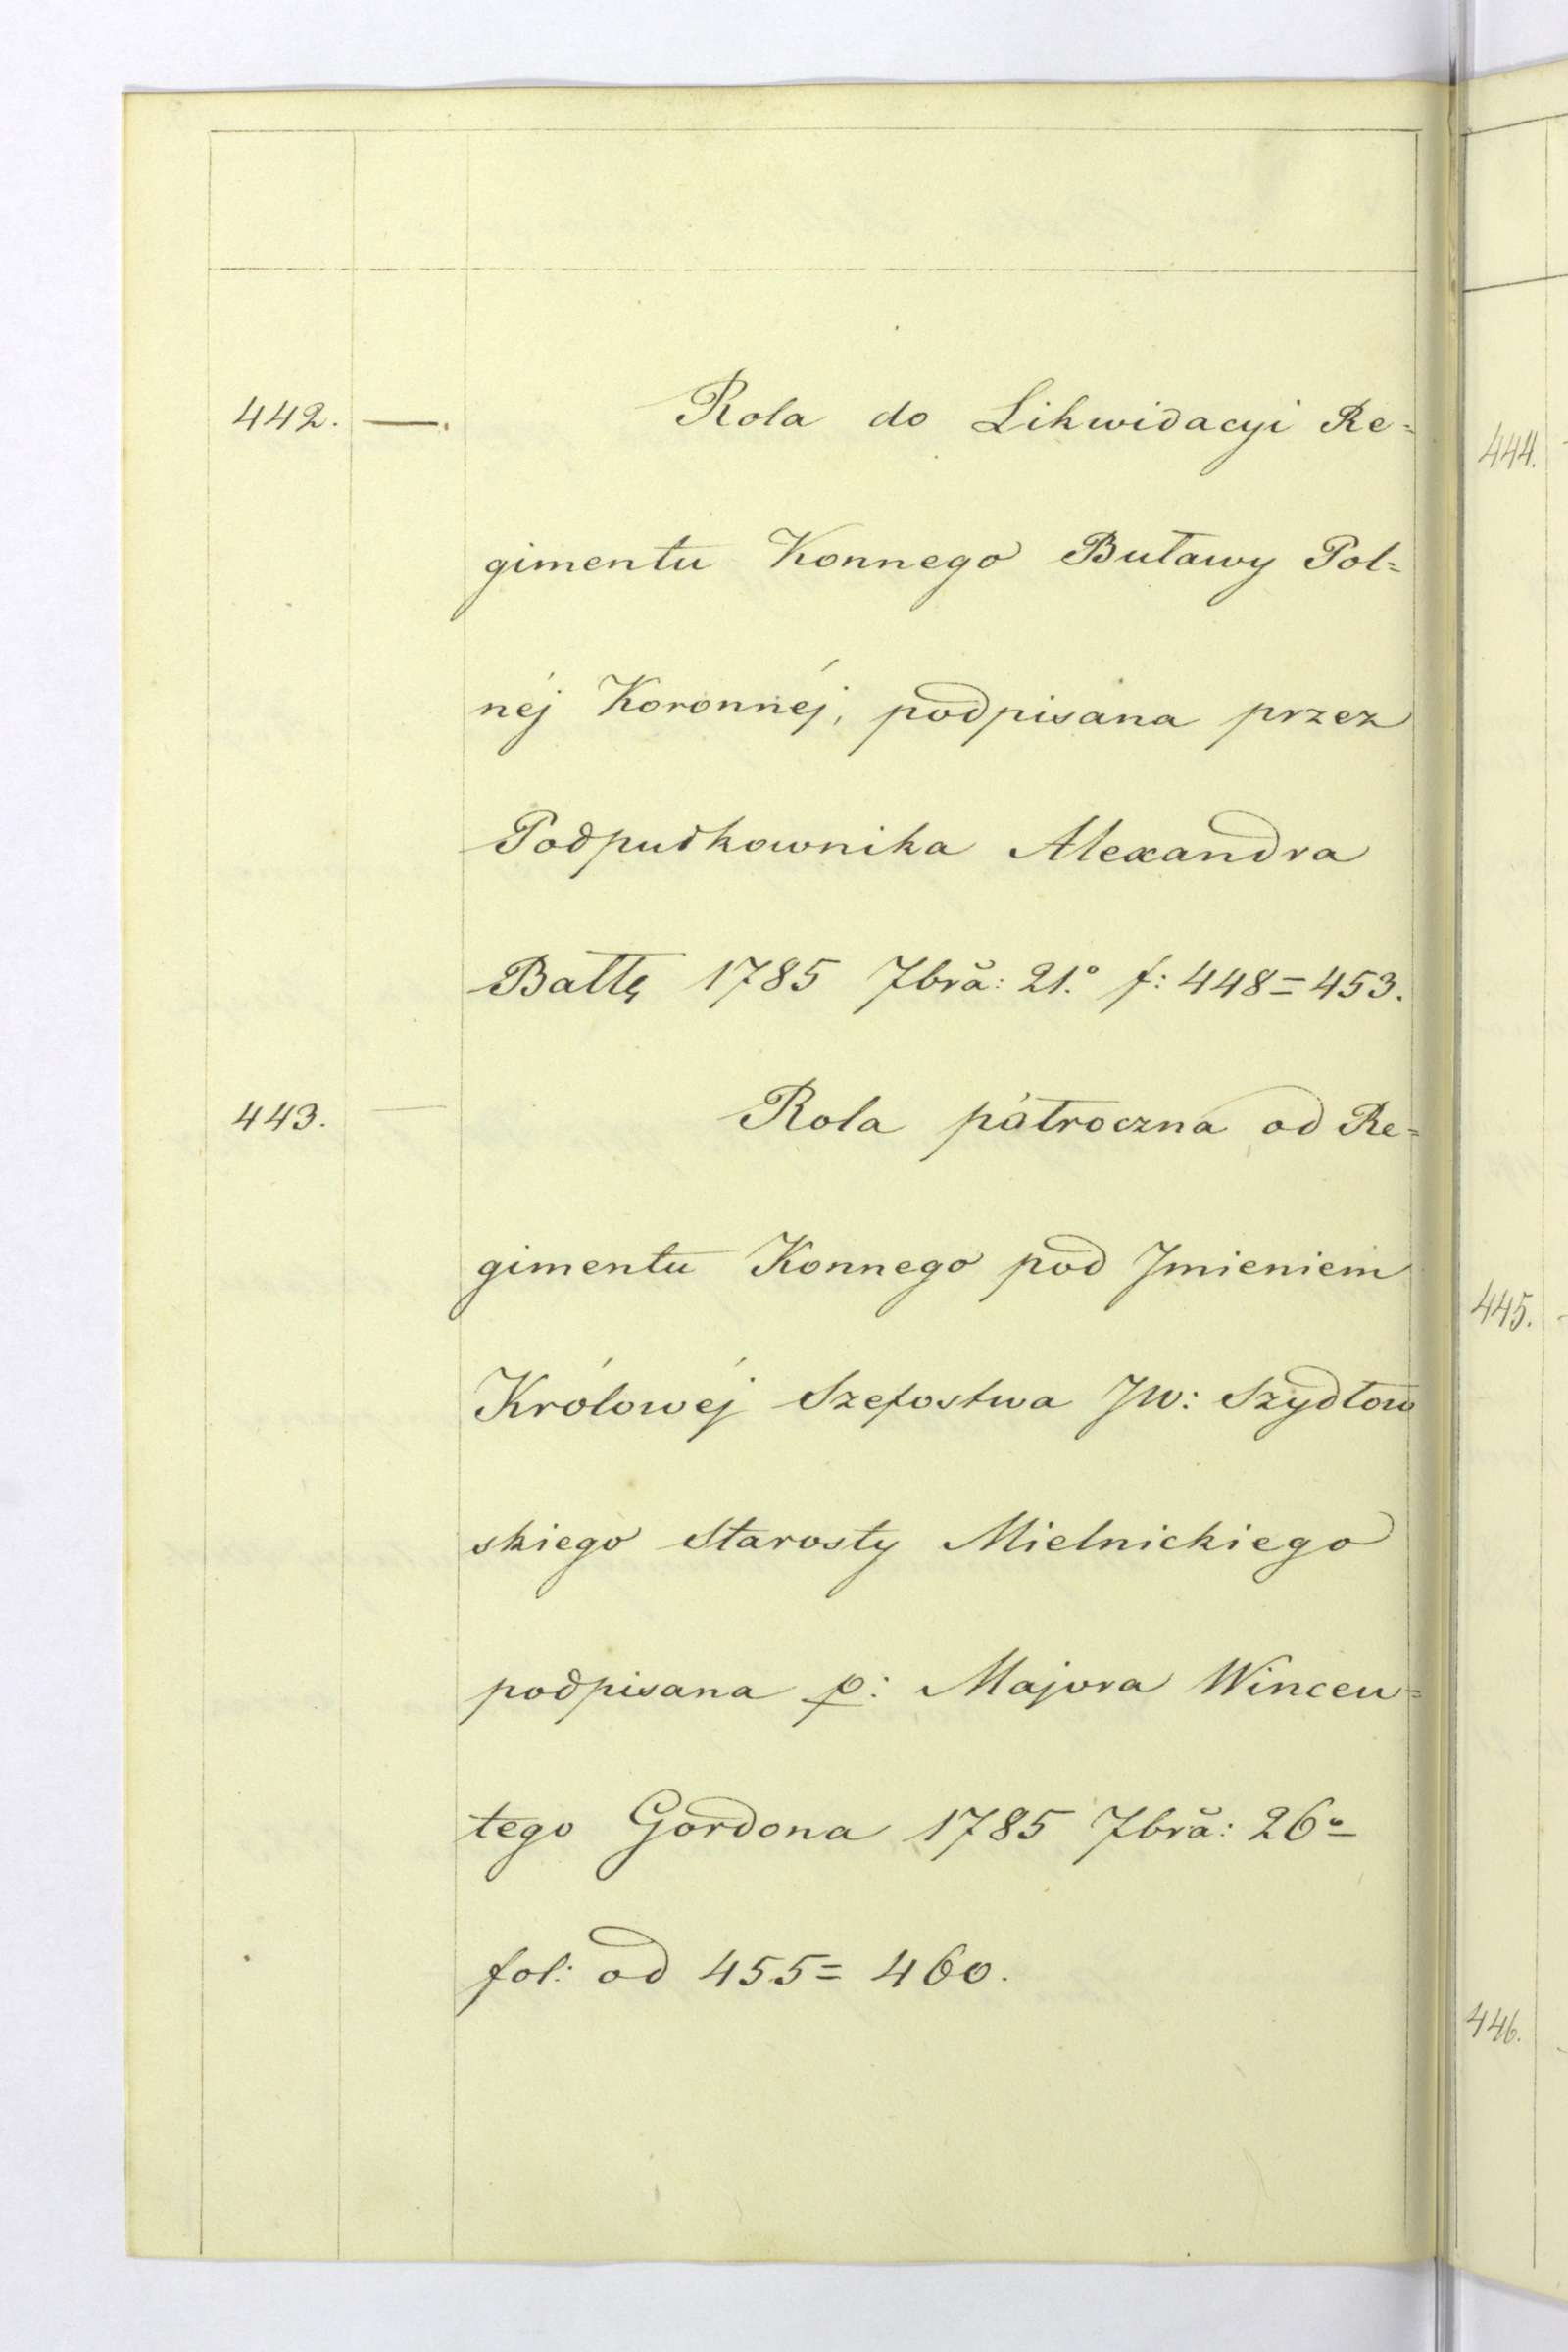 442. —. Rola do Likwidacyi Re=
gimentu Konnego Buławy Pol=
néj Koronnéj, podpisana przez
Podpułkownika Alexandra
Bałłę 1785 7bra: 21.° f: 448=453.
443. — Rola półroczna od Re=
gimentu Konnego pod Jmieniem
Królowéj Szefostwa JW: Szydłow
skiego Starosty Mielnickiego
podpisana p: Majora Wincen=
tego Gordona 1785 7bra: 26°
fol: od 455= 460.
444.
445.
446.